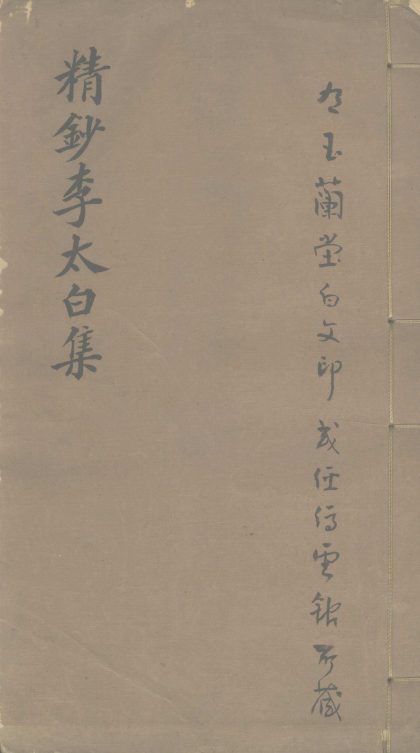 有玉蘭堂白文印 或停雲館所藏
精鈔李太白集